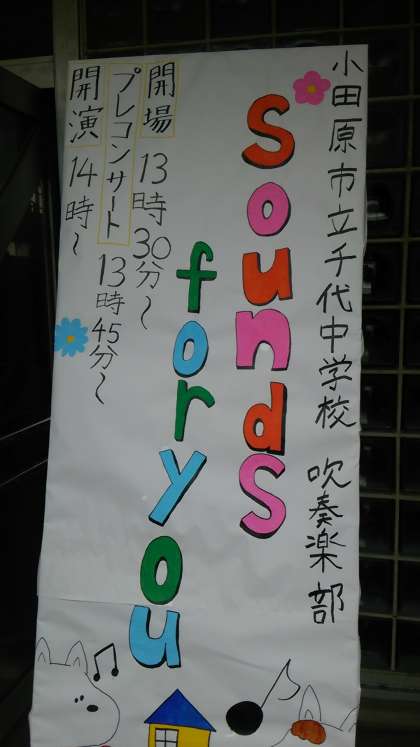 小田原市立千代中学校 吹奏楽部
Sounds
for you
開場 13時30分〜
プレコンサート 13時45分〜
開演 14時〜